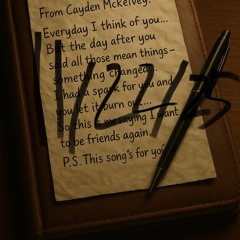 From Cayden McKelvey:
Everyday I think of you...
But the day after you
said all those mean things–
something changed.
I had a spark for you and
you let it burn out...
So this is me saying I want
to be friends again.
P.S. This song's for you
11/22/25